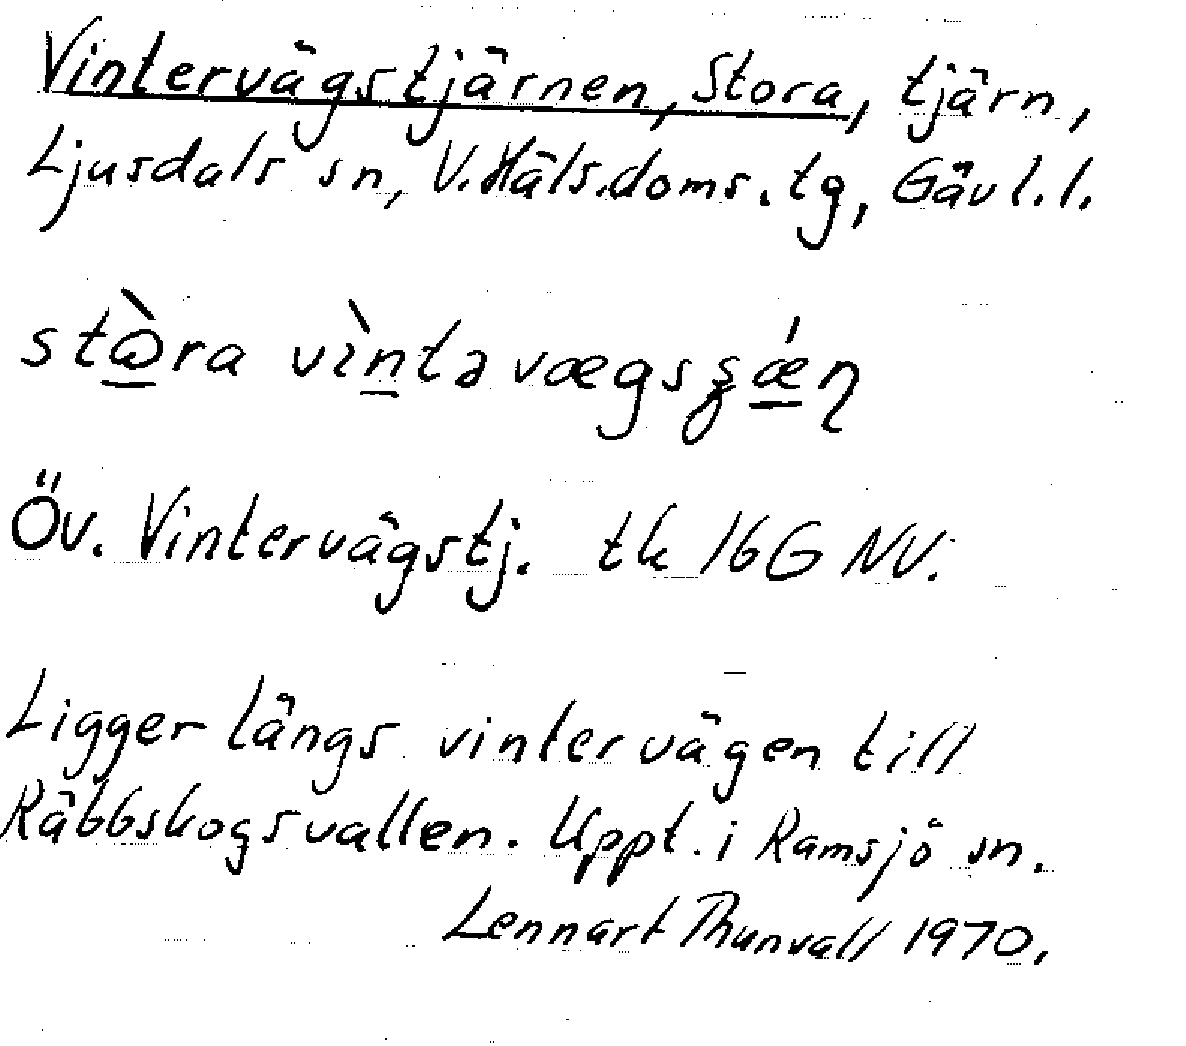 Vintervägstjärnen, Stora, tjärn,
Ljusdals sn, V.Häls.doms.tg, Gävl.l.
vìntəvægs
Öv. Vintervägstj. tk 16G NV.
Ligger längs vintervägen till
Räbbskogsvallen. Uppt. i Ramsjö sn.
Lennart Thunvall 1970.